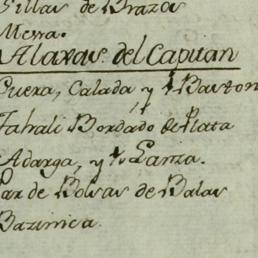 Sillas de Brazos
Mesa.
Alaxas del Capitan
Cuera, Calada y Baston
Tahali Bordado de Plata
Adarga, y Lanza.
Par de Bolsas de Balas
Bazinica